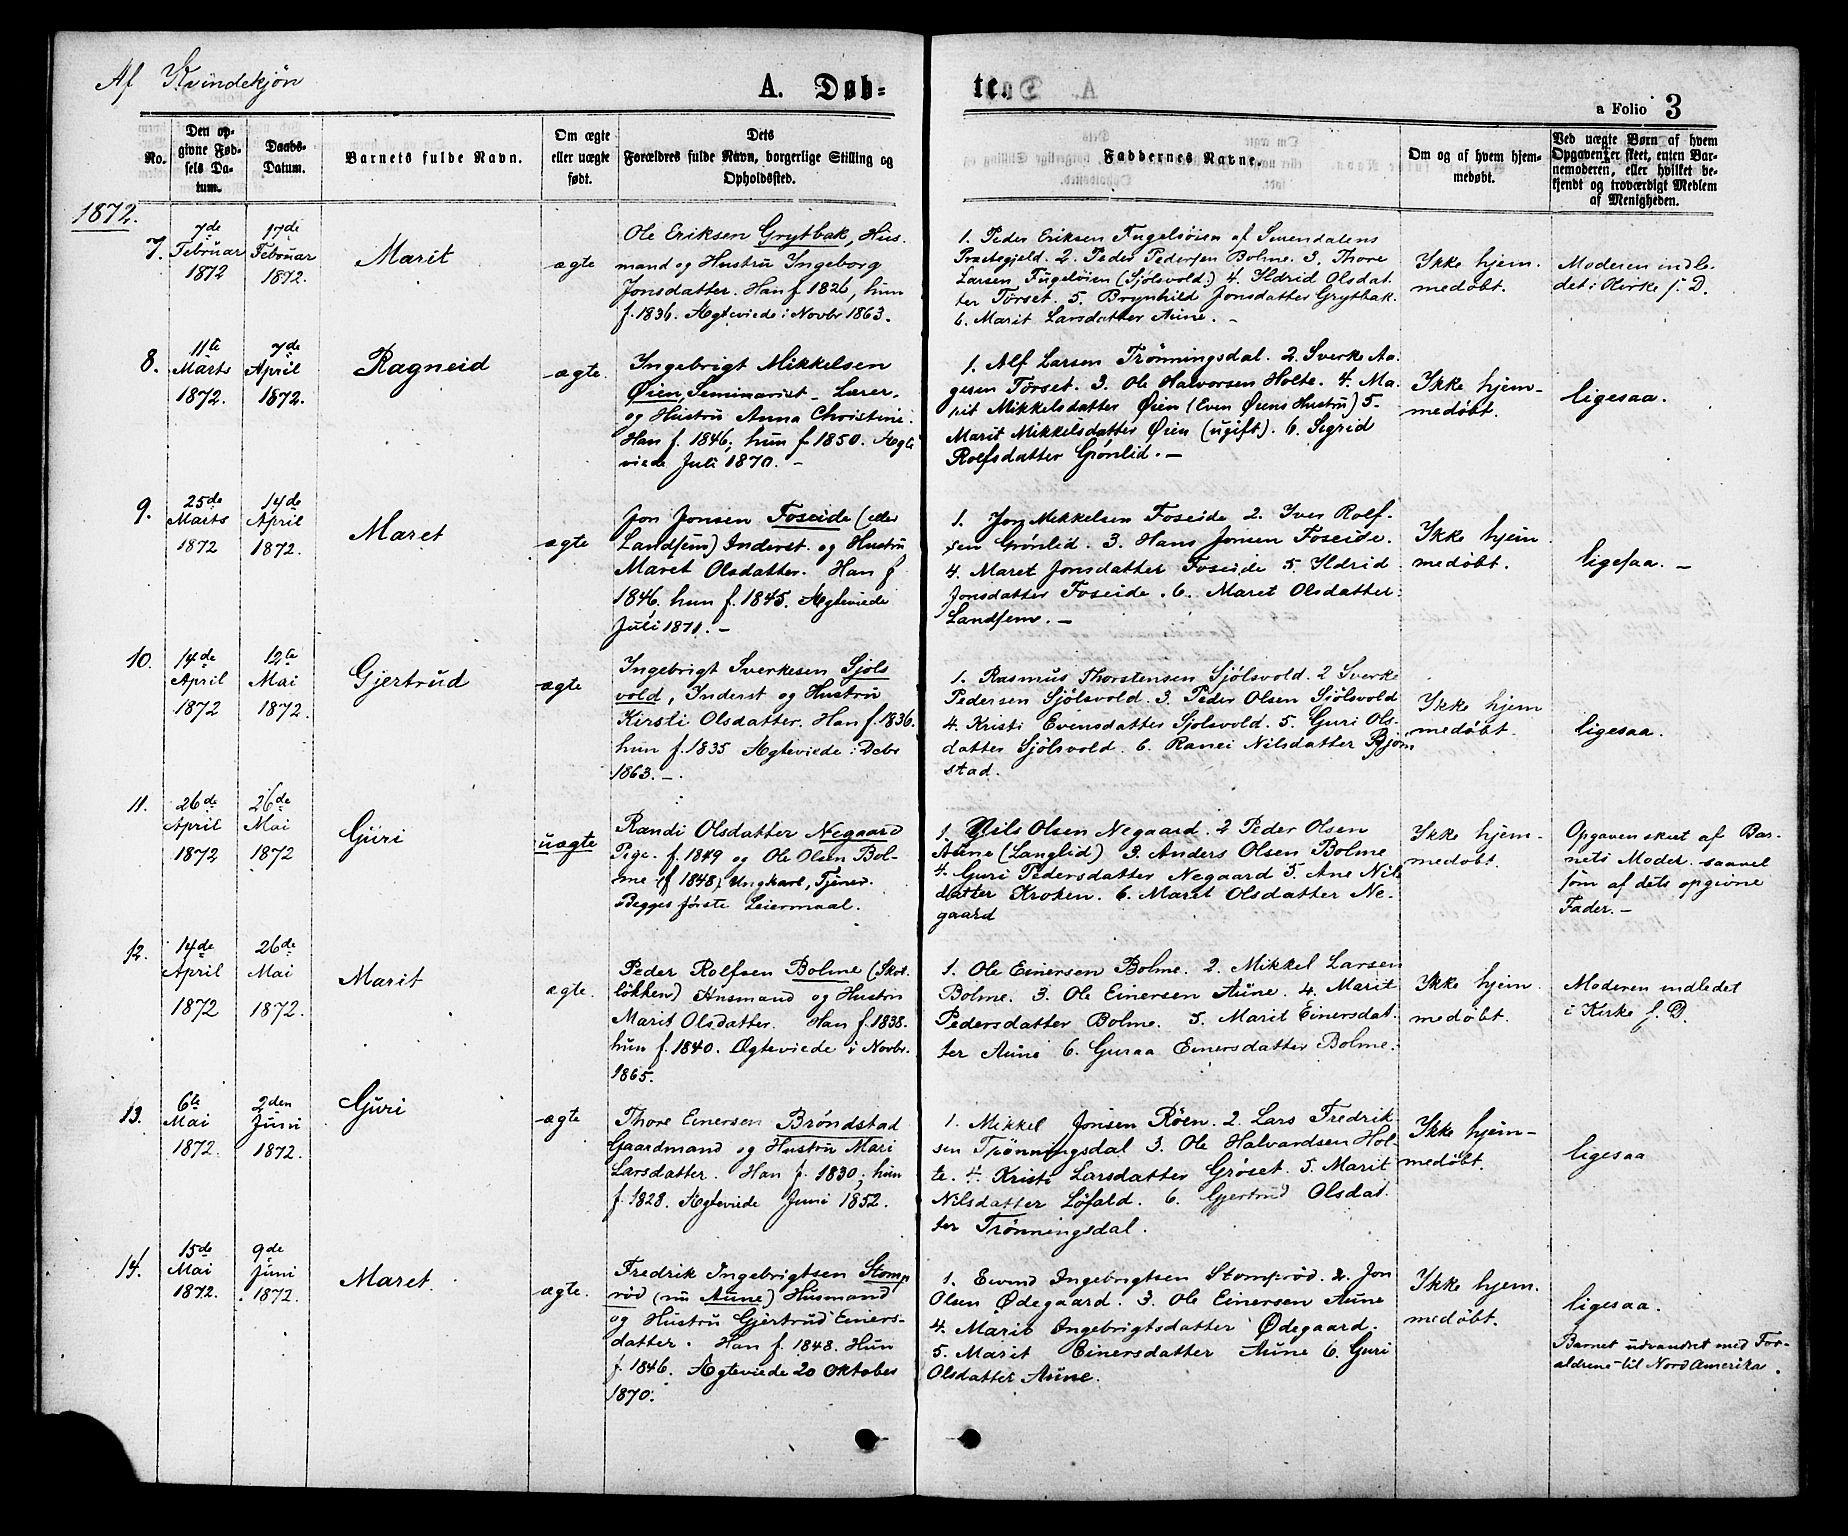 Af Kvindekjön
A. Døb-
te.
a Folio 3
No.
Den op-
givne Fød-
sels Da-
tum.
Daabs-
Datum.
Barnets fulde Navn.
Om ægte
eller uægte
født.
Dets
Forældres fulde Navn, borgerlige Stilling og
Opholdssted.
Faddernes Navne.
Om og af hvem hjem-
medøbt.
Ved uægte Børn af hvem
Opgaven er skeet, enten Bar-
nemoderen, eller hvilket be-
kjendt og troværdigt Medlem
af Menigheden.
1872.
7.
7de
Februar
1872
17de
Februar
1872.
Marit
ægte
Ole Eriksen Grytbak, Hus-
mand og Hustru Ingeborg
Jonsdatter. Han f. 1826, hun
f. 1836. Ægteviede i Novbr 1863.
1. Peder Eriksen Fugelsöien af Surendalens
Præstegjeld. 2. Peder Pedersen Bolme. 3. Thore
Larsen Fugelöien (Sjölsvold.) 4. Ildrid Olsdat-
ter Törset. 5. Brynhild Jonsdatter Grytbak.
6. Marit Larsdatter Aune. -
Ikke hjem-
medøbt.
Moderen indle-
det i Kirke f. D.
8.
11te
Marts
1872.
7de
April
1872.
Ragneid
ægte.
Ingebrigt Mikkelsen
Øien, Seminarist - Lærer,
og Hustru Anna Christine.
Han f. 1846, hun f. 1850. Ægte
viede Juli 1870. -
1. Alf Larsen Trönningsdal. 2. Sverke Aa-
gesen Törset. 3. Ole Halvorsen Holte. 4. Ma-
rit Mikkelsdatter Øien (Even Øiens Hustru) 5.
Marit Mikkelsdatter Øien (ugift). 6. Sigrid
Rolfsdatter Grönlid. -
Ikke hjem-
medøbt.
ligesaa.
9.
25de
Marts
1872
14de
April
1872.
Maret
ægte
Jon Jonsen Foseide (eller
Landsem) Inderst og Hustru
Maret Olsdatter. Han f
1846, hun f. 1845. Ægteviede
Juli 1871. -
1. Jon Mikkelsen Foseide 2. Iver Rolf-
sen Grönlid. 3. Hans Jonsen Foseide.
4. Maret Jonsdatter Foseide 5. Ildrid
Jonsdatter Foseide. 6. Maret Olsdatter
Landsem. -
Ikke hjem
medøbt.
ligesaa. -
10.
14de
April
1872
12te
Mai
1872.
Gjertrud
ægte
Ingebrigt Sverkesen Sjöls
vold, Inderst og Hustru
Kirsti Olsdatter. Han f. 1836.
hun f. 1835 Ægteviede i Debr
1863. -
1. Rasmus Thorstensen Sjölsvold. 2 Sverke
Pedersen Sjölsvold. 3. Peder Olsen Sjölsvold
4. Kristi Evensdatter Sjölsvold. 5. Guri Ols-
datter Sjölsvold. 6. Ranei Nilsdatter Bjørn
stad.
Ikke hjem
medøbt.
ligesaa.
11.
26de
April
1872
26de
Mai
1872
Guri
uægte
Randi Olsdatter Negaard
Pige. f. 1849 og Ole Olsen Bol-
me (f 1848) Ungkarl, Tjener.
Begges förste Leiermaal.
1. Nils Olsen Negaard. 2 Peder Olsen
Aune (Langlid) 3. Anders Olsen Bolme
4. Guri Pedersdatter Negaard 5. Ane Nils
datter Kroken. 6. Maret Olsdatter Ne-
gaard
Ikke hjem-
medøbt.
Opgaven skeet af Bar-
nets Moder saavel
som af dets opgivne
Fader. -
12.
14de
April
1872
26de
Mai
1872.
Marit
ægte.
Peder Rolfsen Bolme (Skol-
lökken) Husmand og Hustru
Marit Olsdatter. Han f. 1838.
hun f. 1840. Ægteviede i Novbr.
1865.
1. Ole Einersen Bolme. 2. Mikkel Larsen
Bolme. 3. Ole Einersen Aune. 4. Marit
Pedersdatter Bolme. 5. Marit Einersdat-
ter Aune 6. Guraa Einersdatter Bolme.
Ikke hjem
medøbt.
Moderen indledet
i Kirke f. D.
13.
6te
Mai
1872.
2den
Juni
1872.
Guri
ægte
Thore Einersen Bröndstad
Gaardmand og Hustru Mari
Larsdatter. Han f. 1830; hun
f. 1828. Ægteviede Juni 1852.
1. Mikkel Jonsen Röen. 2. Lars Fredrik-
sen Trönningsdal 3. Ole Halvardsen Hol-
te. 4. Kristi Larsdatter Gröset. 5. Marit
Nilsdatter Löfald. 6. Gjertrud Olsdat-
ter Trönningsdal.
Ikke hjem-
medøbt.
ligesaa
14.
15de
Mai
1872.
9de
Juni
1872.
Maret
ægte.
Fredrik Ingebrigtsen Stomp
röd (nu Aune) Husmand
og Hustru Gjertrud Einers-
datter. Han f. 1848. Hun
f. 1846. Ægteviede 20 Oktober
1870.
1. Eivind Ingebrigtsen Stompröd. 2. Jon
Olsen Ødegaard. 3. Ole Einersen Aune
4. Marit Ingebrigtsdatter Ødegaard.
5. Marit Einersdatter Aune 6. Guri
Olsdatter Aune.
Ikke hjem.
medøbt.
ligesaa.
Barnet udvandret med For-
ældrene til Nord Amerika.